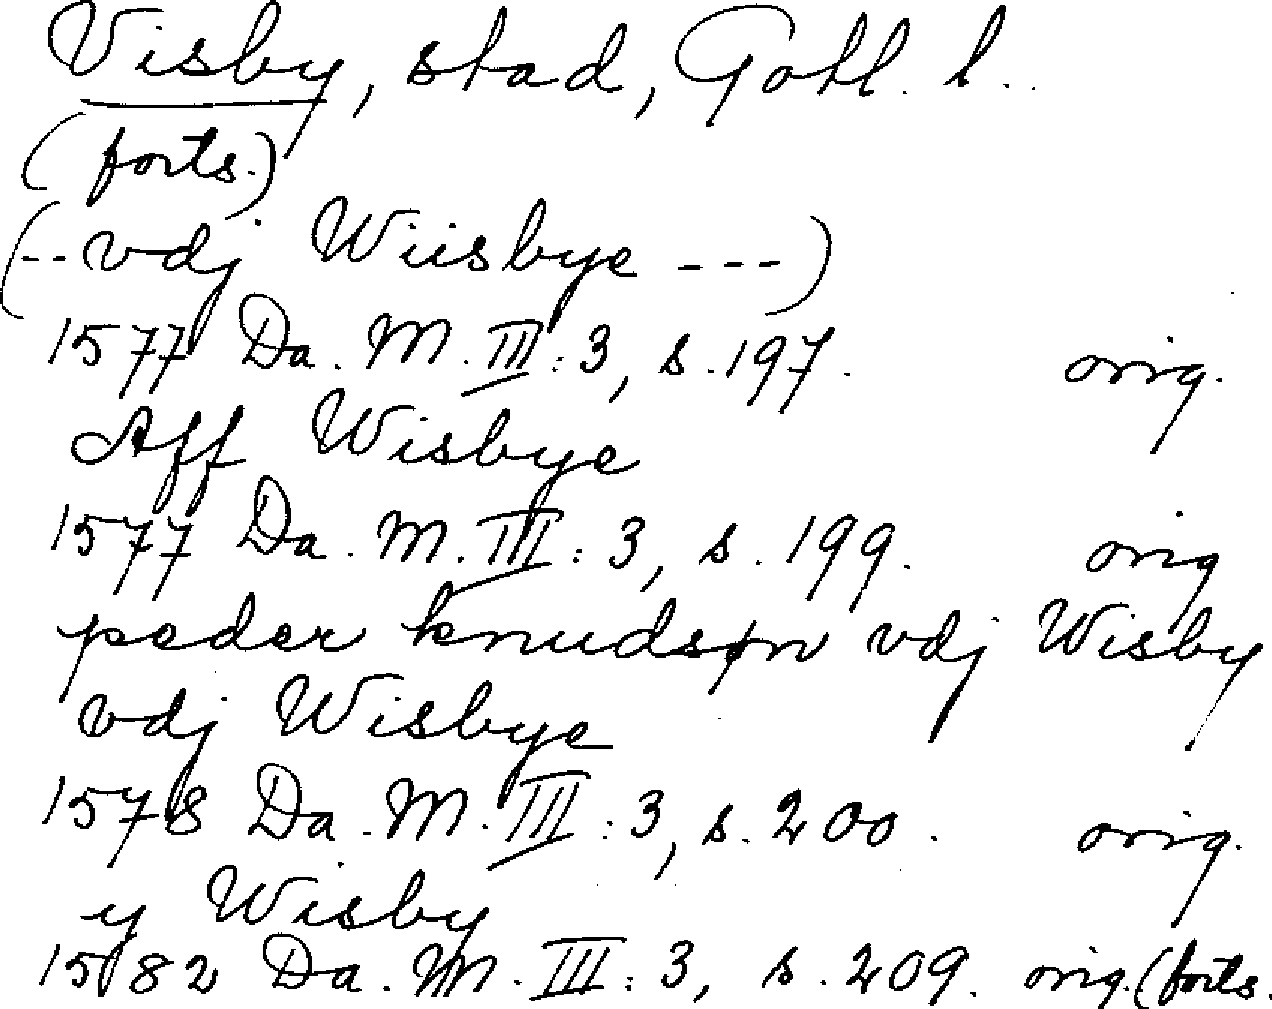 Visby, stad, Gotl. l.
(forts.)
(--vdj Wiisbye ---)
1577 Da. M. III: 3, s. 197. orig.
Aff Wisbye
1577 Da. M. III: 3, s. 199. orig
peder knudsøn vdj Wisby
vdj Wisbye
1578 Da. M. III: 3, s. 200. orig.
y Wisby
1582 Da. M. III: 3, s. 209. orig. (forts.